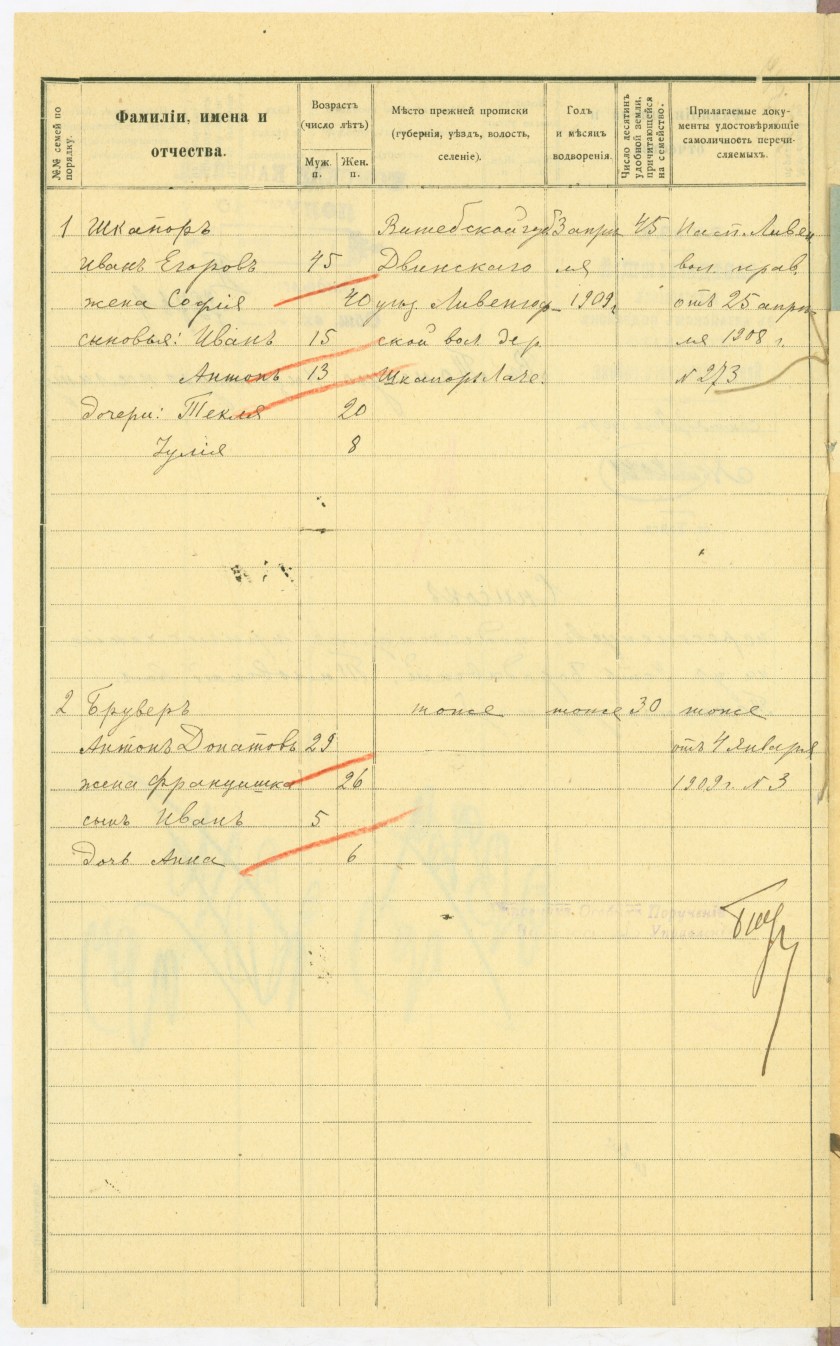 №№ семей по порядку.
Фамиліи, имена и отчества.
Возрастъ (число лѣтъ)
Муж. п.
Жен. п.
Мѣсто прежней прописки (губернія, уѣздъ, волость, селеніе).
Годъ и мѣсяцъ водворенія.
Число десятинъ удобной земли, причитающейся на семейство.
Прилагаемые документы удостовѣряющіе самоличность перечисляемыхъ.
1 Шкапоръ Витебской губ 3 апрѣ 45 Пасп. Ливен
Иванъ Егоровъ 45 Двинскаго ля вол. прав.
жена Софія 40 уѣзд. Ливенгоф 1909 г. отъ 25 апрѣ
сыновья: Иванъ 15 ской вол. дер. ля 1908 г.
Антонъ 13 Шкапоры № 273
дочери: Текля 20
Юлія 8
2 Бруверъ тоже тоже 30 тоже
Антонъ Донатовъ 29 отъ 4 января
жена Францишка 26 1909 г. № 3
сынъ Иванъ 5
дочь Анна 6